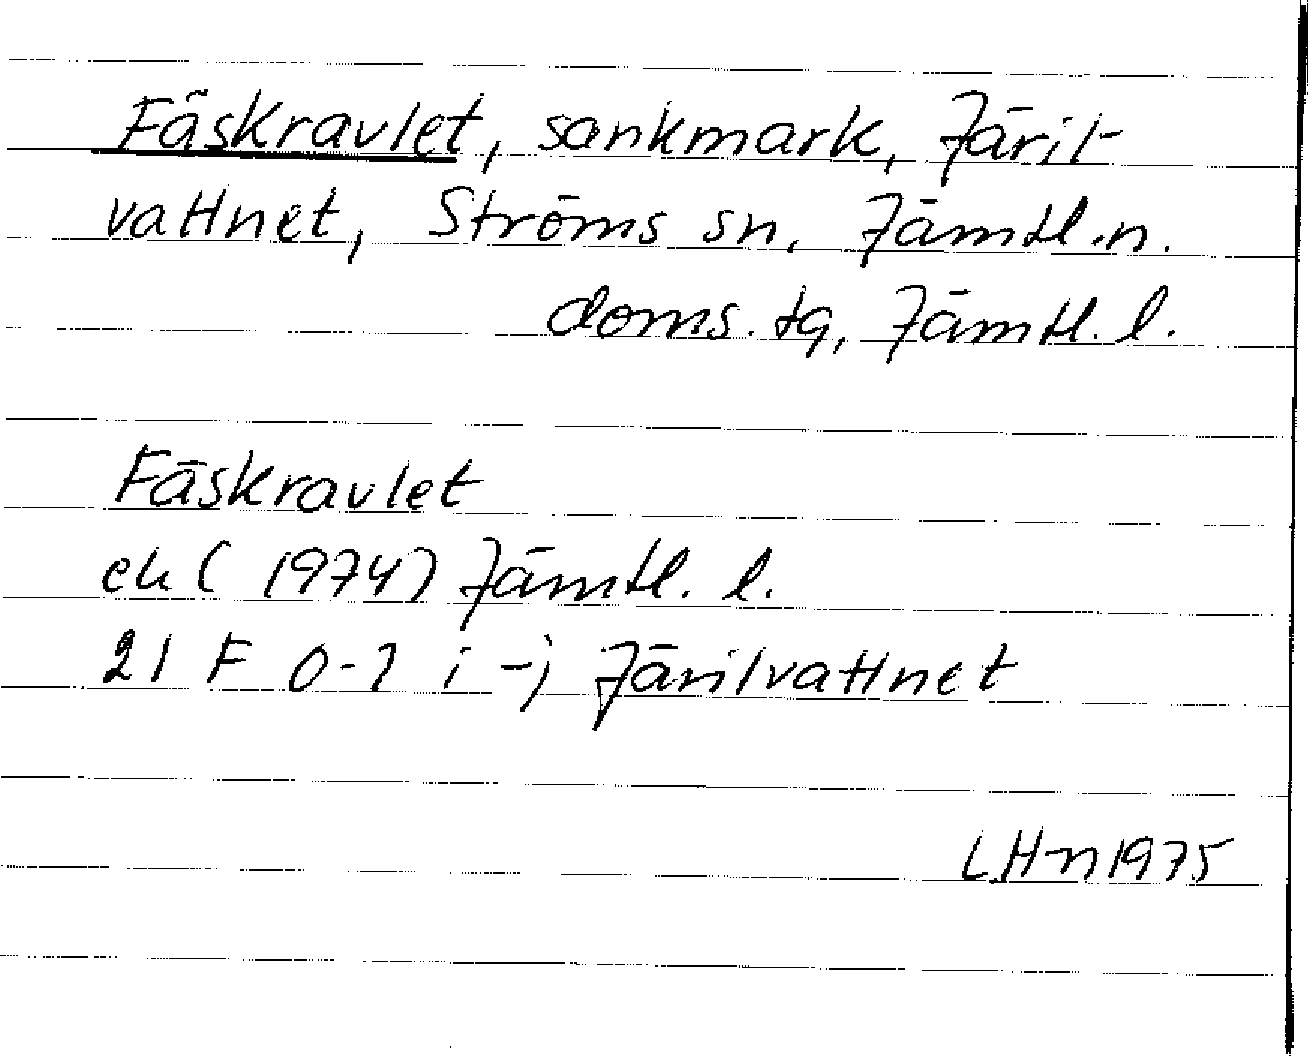 Fäskravlet, sankmark, Järil-
vattnet, Ströms sn, Jämtl.n.
doms.tg, Jämtl. l.
Fäskravlet
ek (1974) Jämtl. l.
21 F 0-1 i-j Järilvattnet
LHn 1975